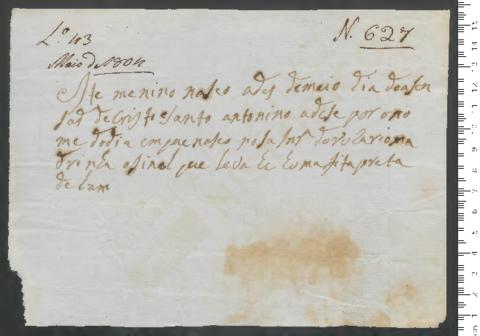 Lº 43
N. 627
Maio de 1804
Este menino naseo a des de maio dia da asen
saõ de Cristo Santo antonino a de se por o no
me do dia em que naseo nosa snrª do rozario ma
drinha o sinal que leva he huma fita preta
de lam